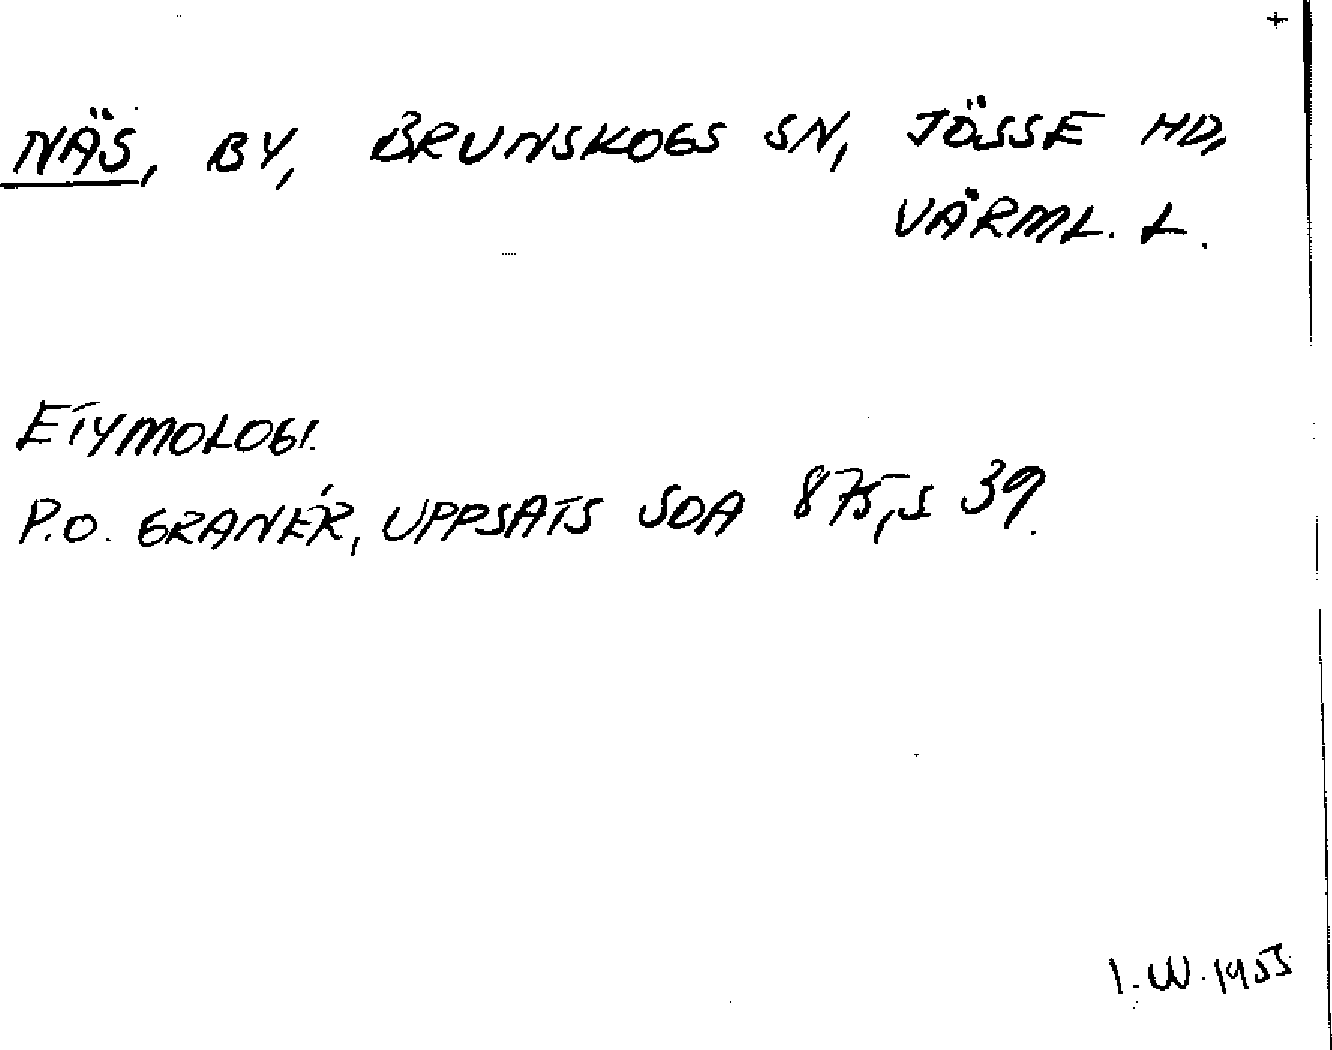 +
NÄS, BY, BRUNSKOGS SN, JÖSSE HD,
VÄRML. L.
ETYMOLOGI.
P.O. GRANÉR, UPPSATS SOA 875, S 39.
I.W. 1955